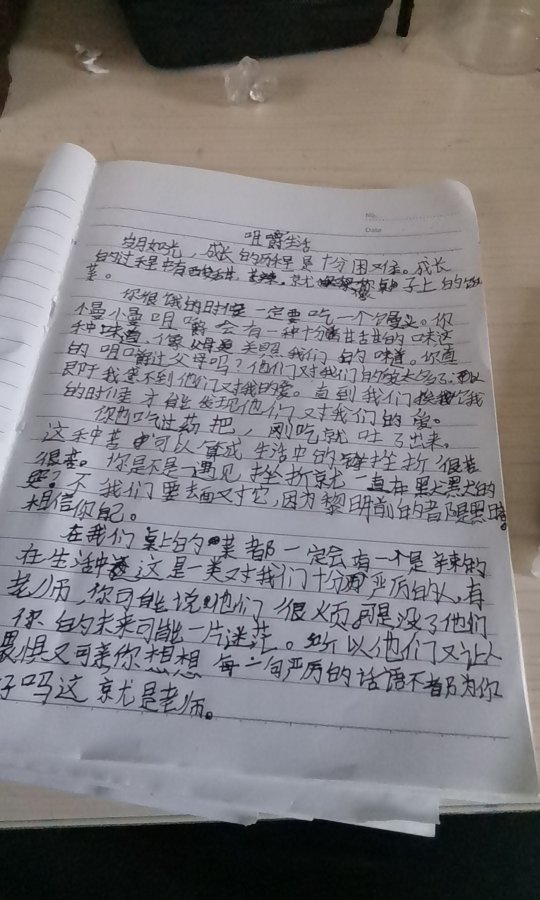 No.
Date
咀嚼生活
岁月如光，成长的历程是十分困难。成长
的过程中有酸甜苦辣，就像桌子上的饭
菜。
你很饿的时候一定要吃一个馒头。你
慢慢咀嚼会有一种十分甘甜的味这
种味道，像父母关照我们的味道。你真
的咀嚼过父母吗？他们对我们的爱太多了，
即于我感不到他们对我的爱。直到我们挨饿
的时候才能发现他们对我们的爱。
你也吃过药把，刚吃就吐了出来。
这种苦可以算成生活中的挫折很苦
很苦。你是不是一遇见挫折就一直在黑犬黑犬的
不我们要去面对它，因为黎明前的都是黑暗。
相信你自己。
在我们桌上的菜都一定会有一个是辣的
在生活中这是一类对我们十分严厉的人，有
老师，你可能说他们很烦可是没了他们
你的未来可能一片迷茫。所以他们又让人
畏惧又可亲你想想每一句严厉的话语不都为你
好吗这就是老师。